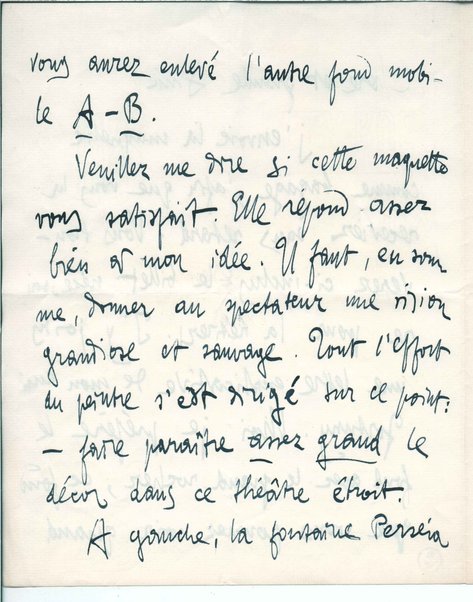 vous aurez enlevé l'autre fond mobi-
le A - B.
Veuillez me dire si cette maquette
vous satisfait. Elle répond assez
bien à mon idée. Il faut, en som
me, donner au spectateur une vision
grandiose et sauvage. Tout l'effort
du peintre s'est dirigé sur ce point:
- faire paraître assez grand le
décor dans ce théâtre étroit.
A gauche, la fontaine Perseia